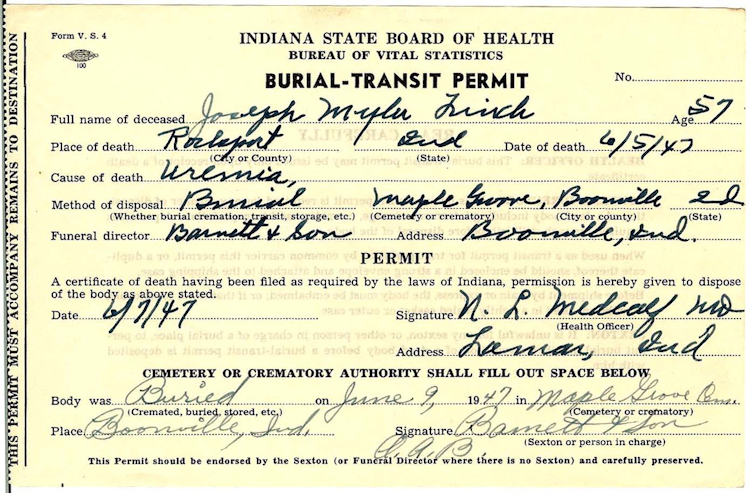 Form V. S. 4
100
INDIANA STATE BOARD OF HEALTH
BUREAU OF VITAL STATISTICS
BURIAL-TRANSIT PERMIT
No.
Full name of deceased Joseph Myler Finch Age 57
Place of death Rockport Ind Date of death 6/5/47
(City or County) (State)
Cause of death Uremia,
Method of disposal Burial Maple Grove, Boonville Ind
(Whether burial cremation, transit, storage, etc.) (Cemetery or crematory) (City or county) (State)
Funeral director Barnett & Son Address Boonville, Ind.
PERMIT
A certificate of death having been filed as required by the laws of Indiana, permission is hereby given to dispose
of the body as above stated.
Date 6/7/47 Signature N. L. Medcalf MD
(Health Officer)
Address Lamar, Ind
CEMETERY OR CREMATORY AUTHORITY SHALL FILL OUT SPACE BELOW
Body was Buried on June 9, 1947 in Maple Grove Cem.
(Cremated, buried, stored, etc.) (Cemetery or crematory)
Place Boonville, Ind. Signature Barnett & Son
(Sexton or person in charge)
C. A. B.
This Permit should be endorsed by the Sexton (or Funeral Director where there is no Sexton) and carefully preserved.
THIS PERMIT MUST ACCOMPANY REMAINS TO DESTINATION